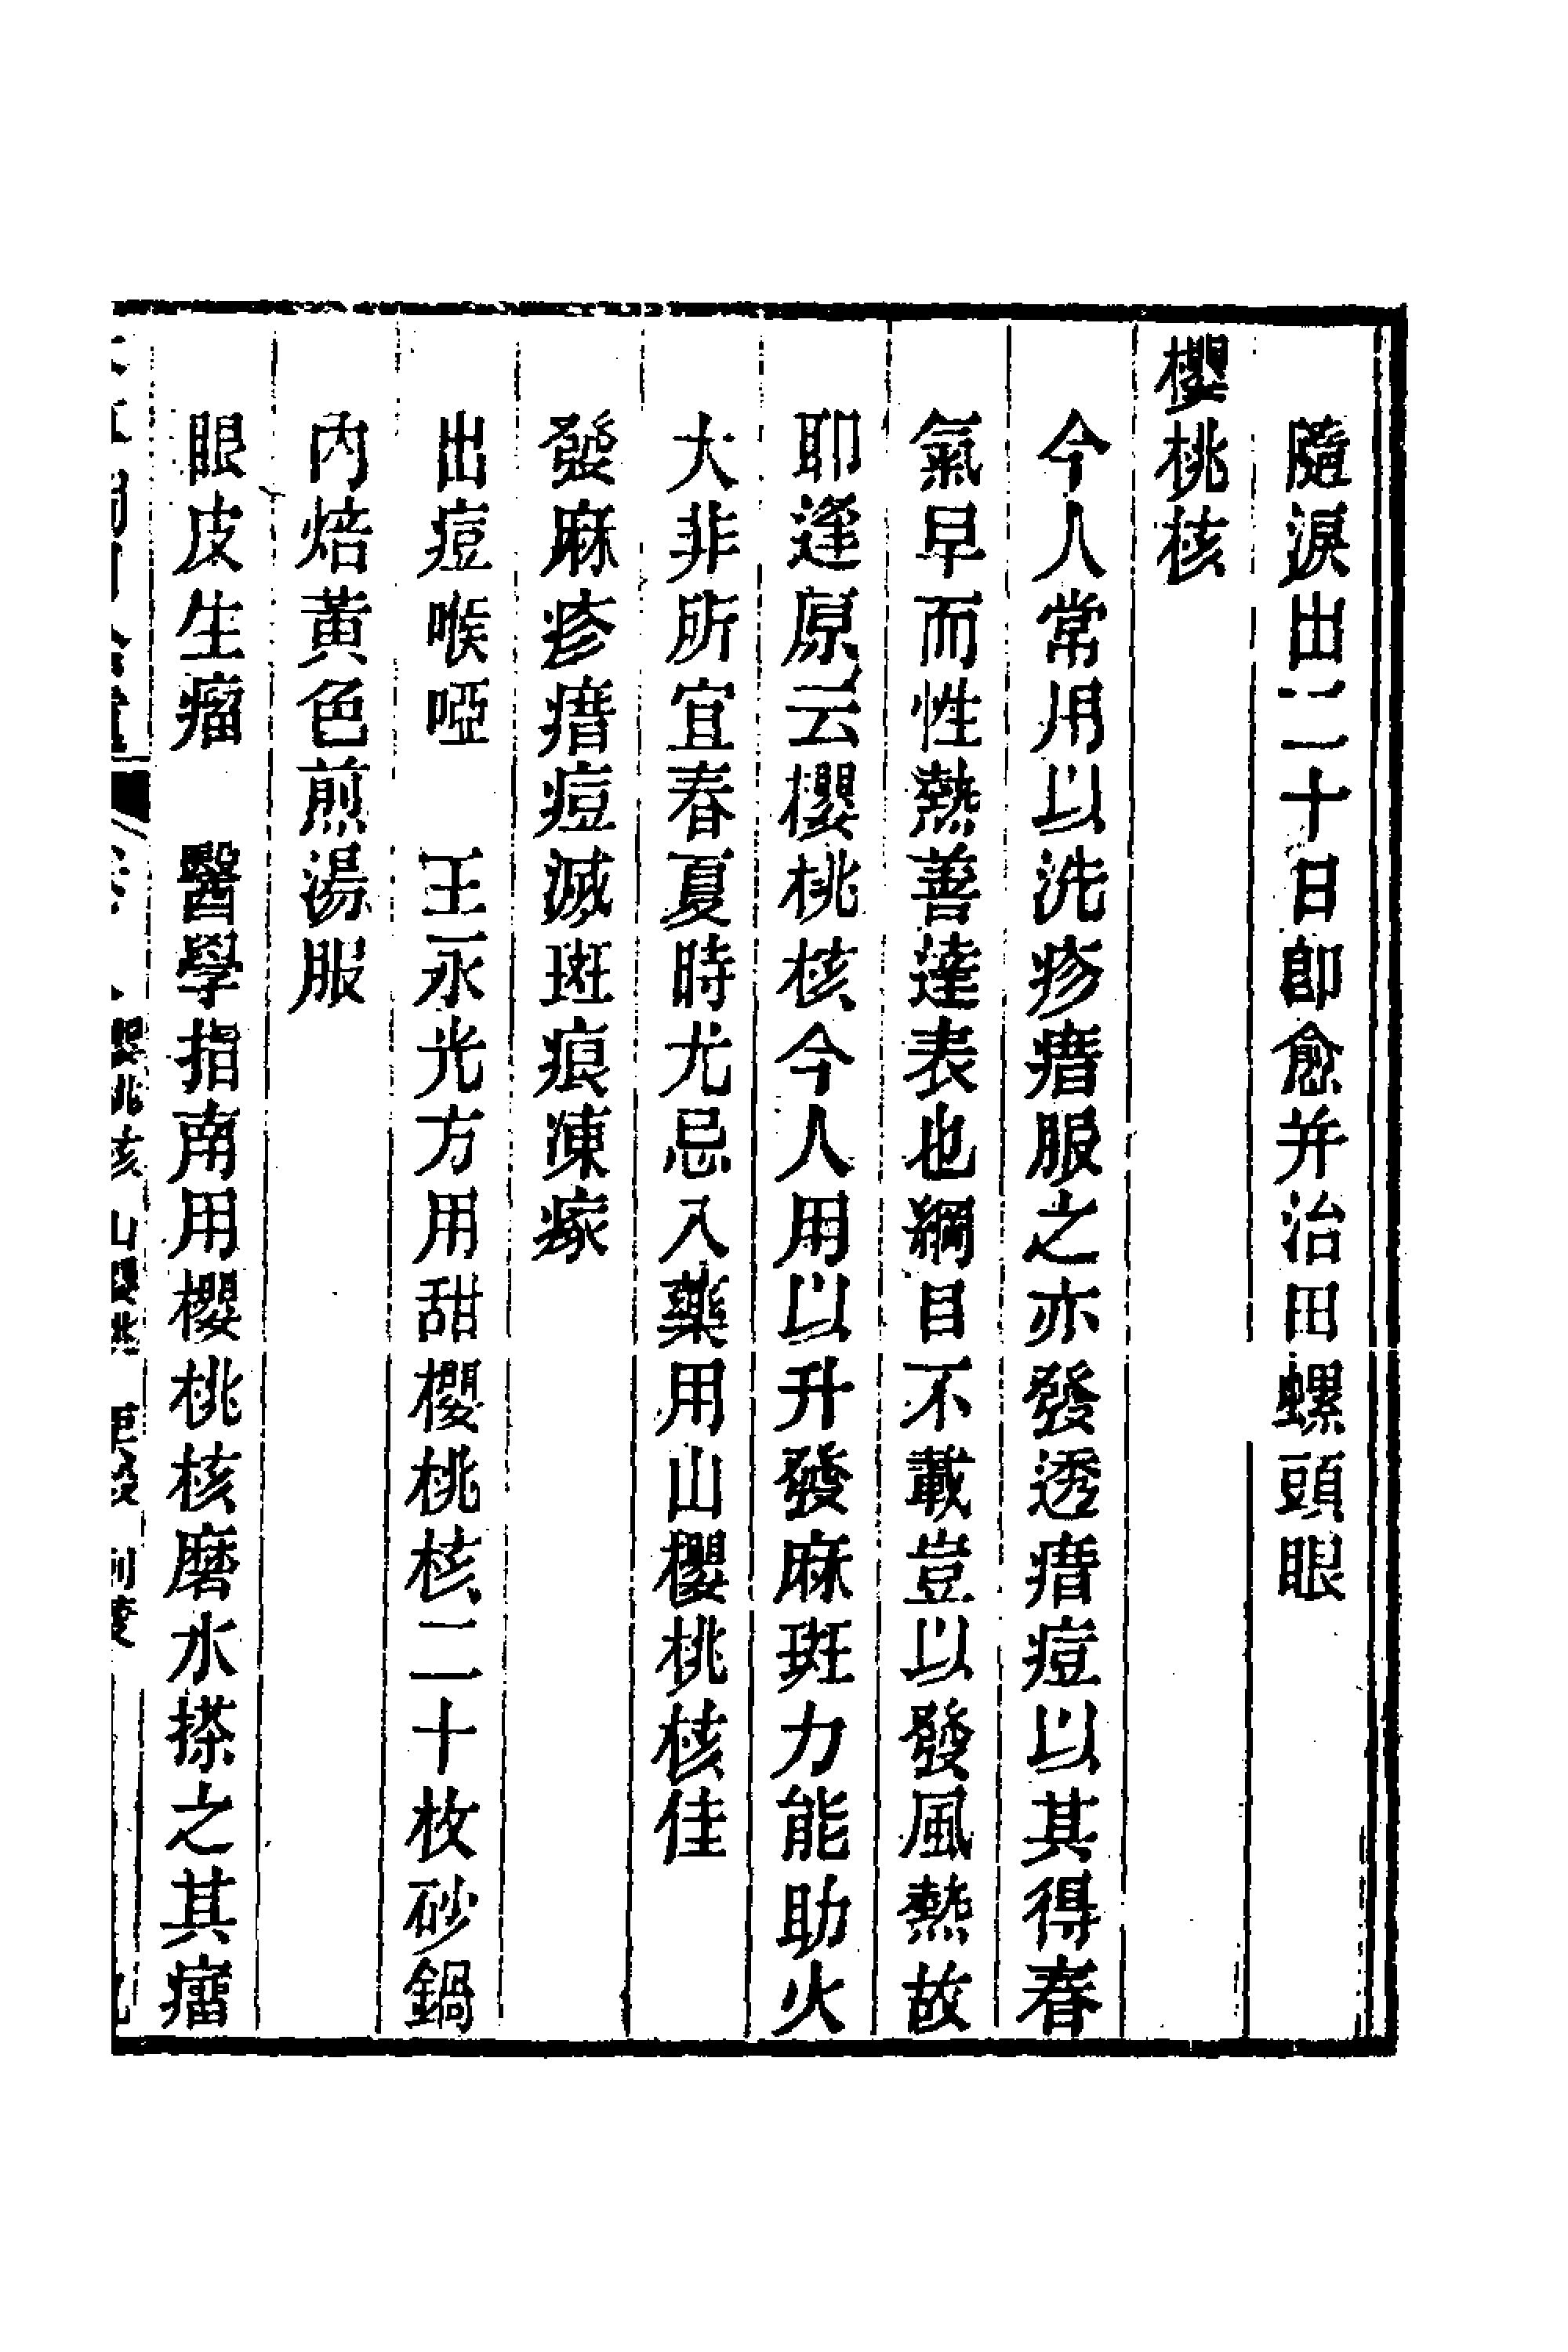 隨淚出二十日即愈并治田螺頭眼
櫻桃核
今人常用以洗疹瘄服之亦發透瘄痘以其得春
氣早而性熱善達表也綱目不載豈以發風熱故
耶逢原云櫻桃核今人用以升發麻斑力能助火
大非所宜春夏時尤忌入藥用山櫻桃核佳
發麻疹瘄痘滅斑痕凍瘃
出痘喉啞　王永光方用甜櫻桃核二十枚砂鍋
內焙黃色煎湯服
眼皮生瘤　醫學指南用櫻桃核磨水搽之其瘤
櫻桃核　山櫻桃